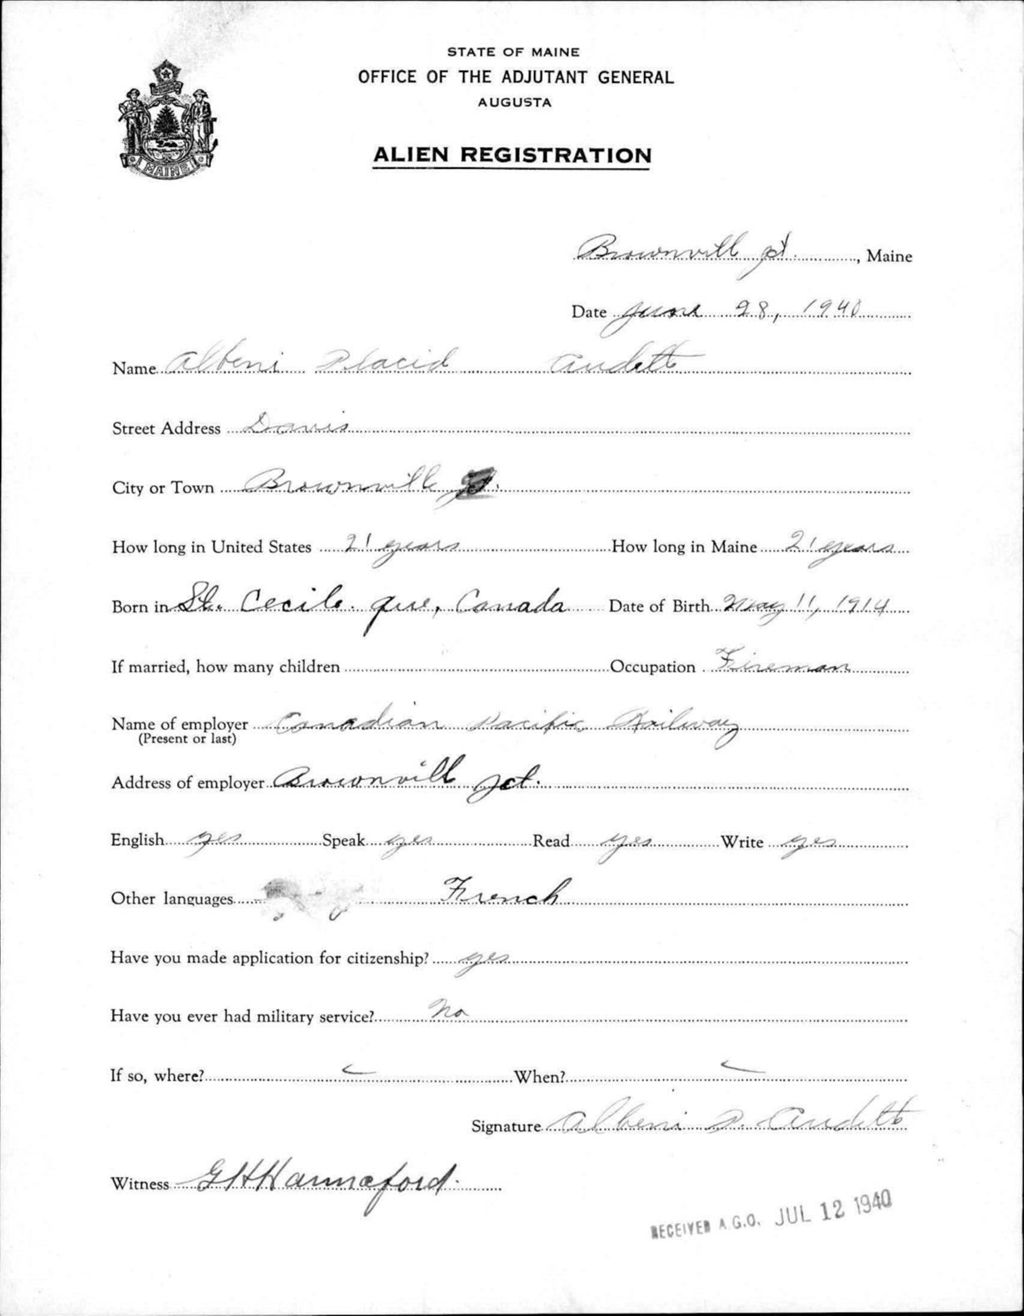 STATE OF MAINE
OFFICE OF THE ADJUTANT GENERAL
AUGUSTA
MAINE
ALIEN REGISTRATION
Brownvill Jct., Maine
Date June 28, 1940
Name Albeni Placid Audett
Street Address Davis
City or Town Brownvill Jct.
How long in United States 21 years How long in Maine 21 years
Born in St. Cecile. Que, Canada Date of Birth May 11, 1914
If married, how many children Occupation Fireman
Name of employer Canadian Pacific Railway
(Present or last)
Address of employer Brownvill Jct.
English yes Speak yes Read yes Write yes
Other languages French
Have you made application for citizenship? yes
Have you ever had military service? No
If so, where? When?
Signature Albeni P. Audett
Witness G H Hannaford.
RECEIVED A.G.O. JUL 12 1940